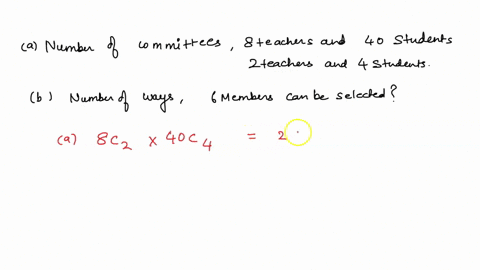 (a) Number of committees, 8 teachers and 40 Students
2 teachers and 4 Students.
(b) Number of ways, 6 Members can be selected?
(a) 8C₂ × 40C₄ = 2